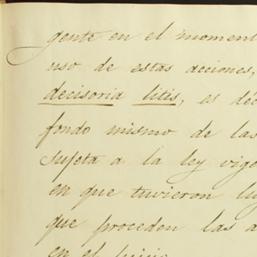 gente en el moment
uso de estas acciones,
decisoria litis, es dec
fondo mismo de las
sujeta a la ley vige
en que tuvieron lu
que proceden las a
en el juicio